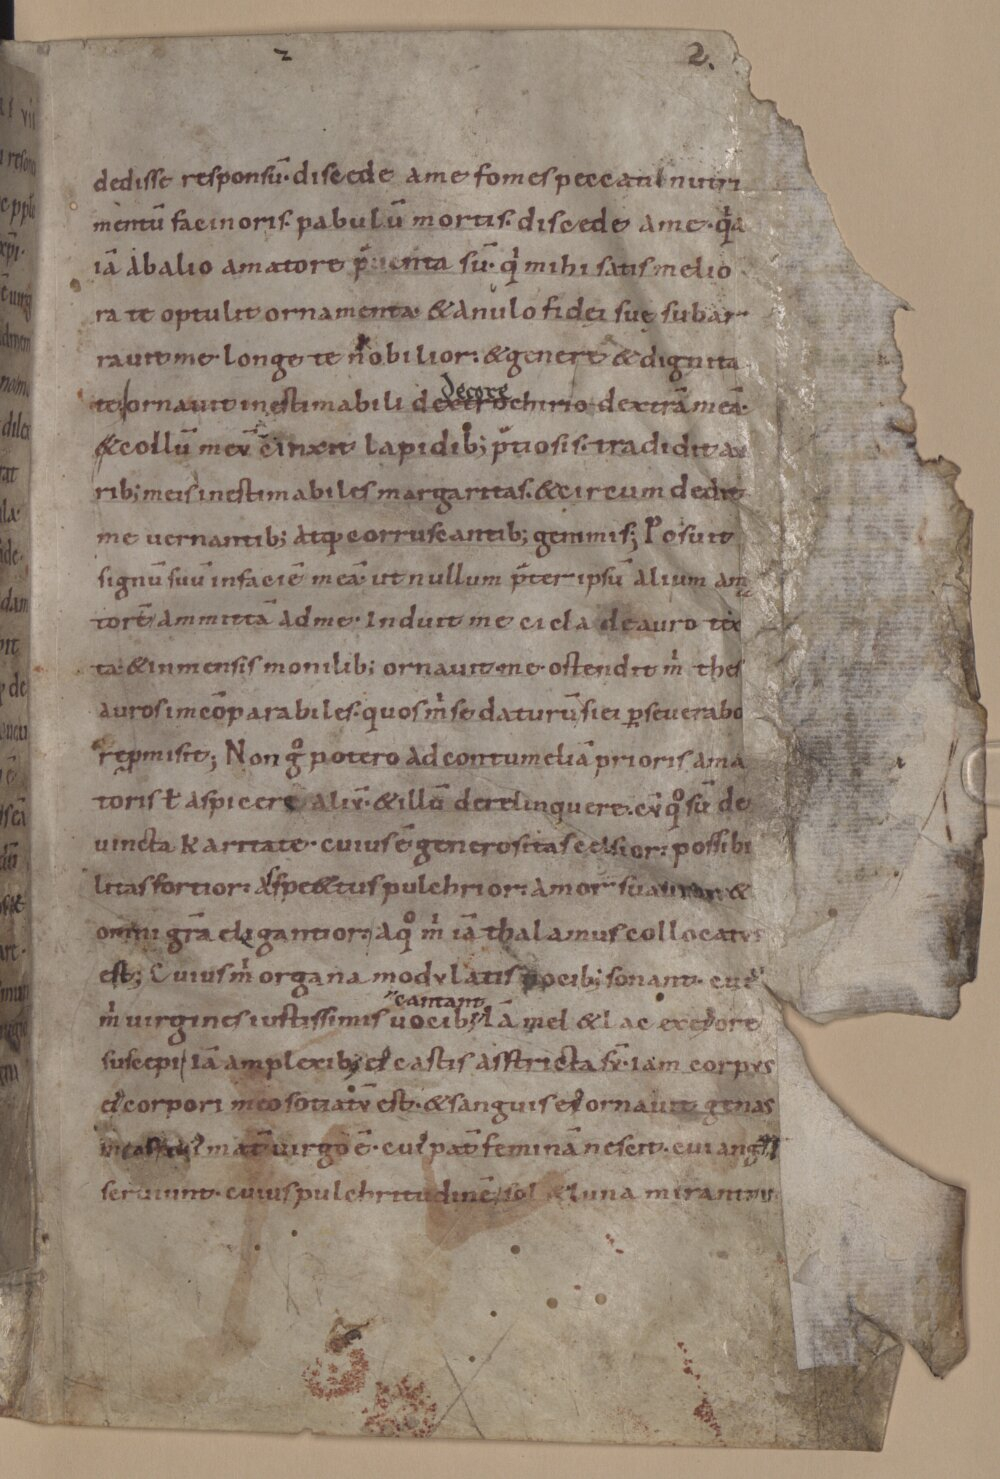 2.
dedisse responsū· discede a me fomes peccati nutri
mentū facinoris· pabulū mortis· discede a me· q̇a
iā ab alio amatore p̄uenta sū· q̇ mihi satis melio
ra te optulit ornamenta· & anulo fidei suę subar
rauit me· longe te nobilior· & genere & dignita
decore
te/ ornauit inestimabili dextrochirio dextrā meā·
& collū mev̄ cinxit lapidib; p̄tiosis· tradidit au
rib; meis inestimabiles margaritas· & circum dedit
me uernantib; atq; corruscantib; gemmis; Posuit
signū suū in faciē meā· ut nullum p̄ter ipsū alium am
torē ammittā ad me· Induit me ciclade auro tex
ta· & inmensis monilib; ornauit me· ostendit ṁ thes
auros incōparabiles· quos ṁ se daturū si ei ꝑseuerabo
reꝓmisit; Non gͦ potero ad contumeliā prioris ama
toris ł aspicere aliv̄· & illū derelinquere· cv̄ qͦ sū de
uincta karitate· cuius ē generositas celsior· possibi
litas fortior· aspectus pulchrior· amor suauior &
omni grā eligantior· a qͦ ṁ iā thalamus collocatvs
est; Cuius ṁ organa modvlatis uocib; sonant· cui
cantant
ṁ uirgines iustissimis uocib; Iā mel & lac ex ei ore
suscepi/ Iā amplexib; ei castis asstricta sv̄· iam corpvs
ei corpori meo sotiatv̄ est· & sanguis ei ornauit genas
mat̄ uirgo ē· cui pat̄ feminā nescit· cui angli
seruiunt· cuius pulchritudinē sol & luna mirantur